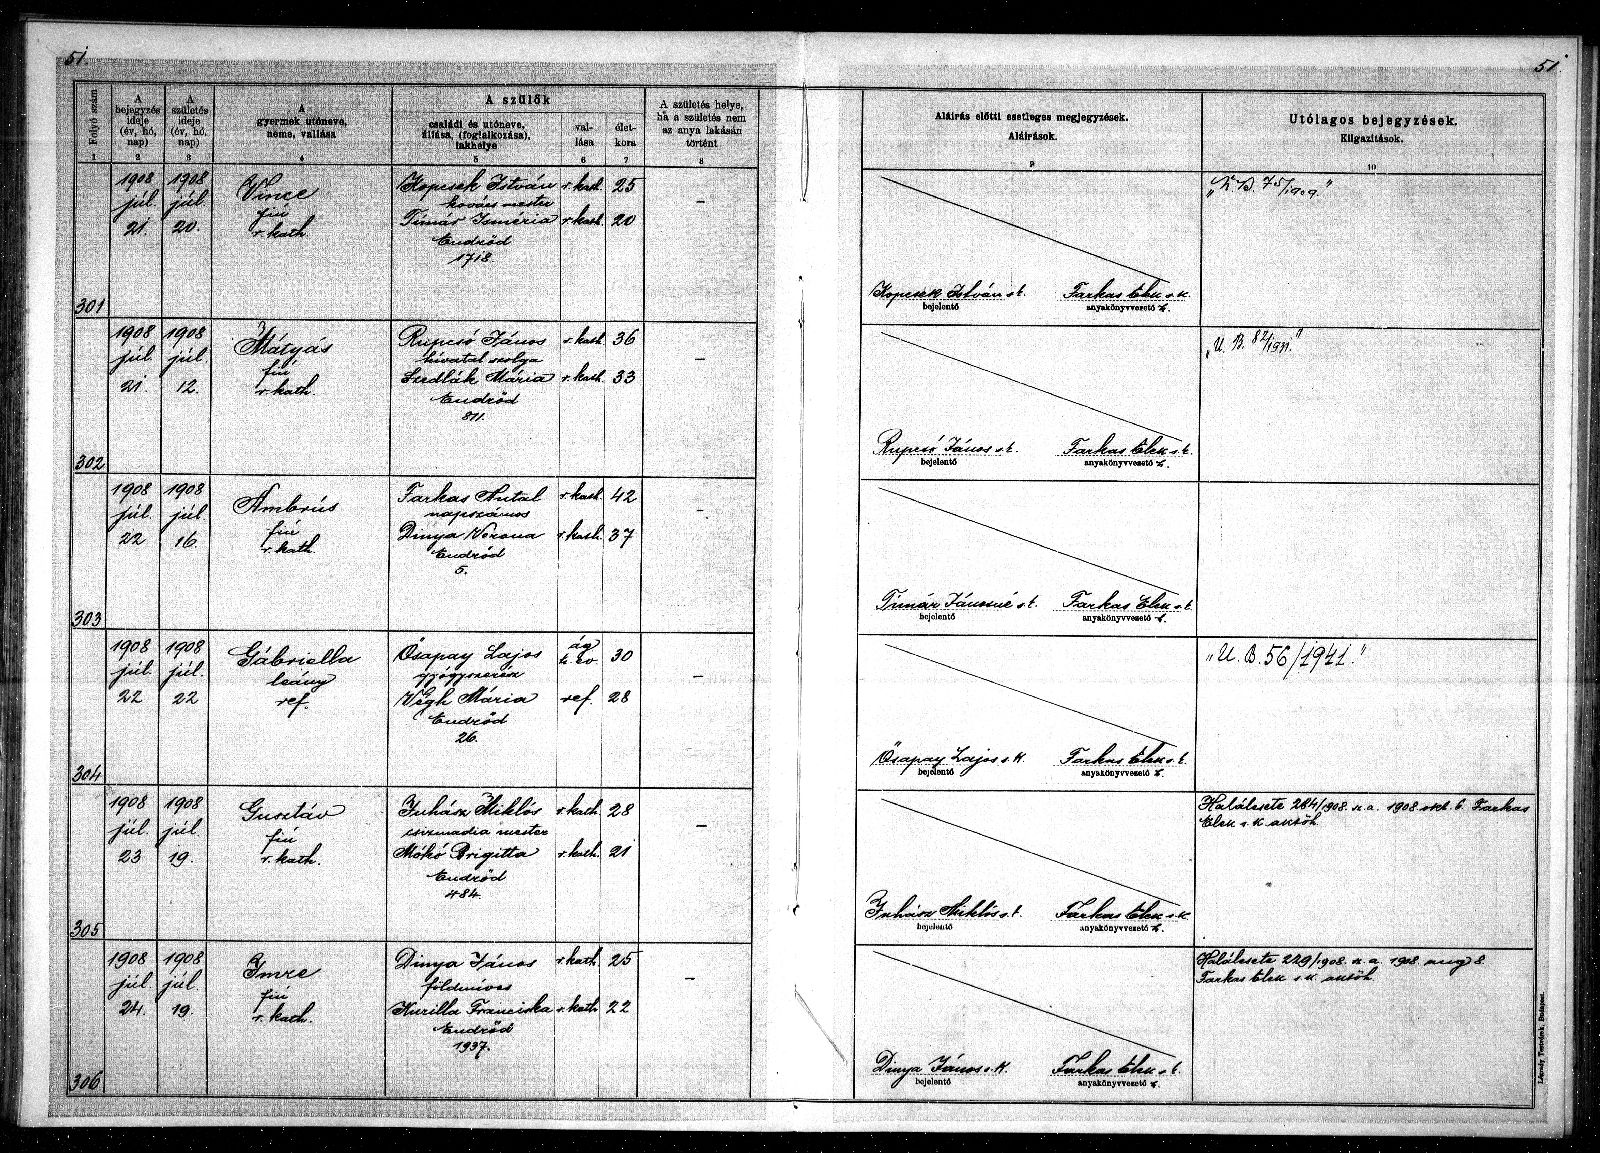 51.
51.
Folyó szám
A bejegyzés ideje (év, hó, nap)
A születés ideje (év, hó, nap)
A gyermek utóneve, neme, vallása
A szülők
családi és utóneve, állása, (foglalkozása), lakhelye
val-lása
élet-kora
A születés helye, ha a születés nem az anya lakásán történt
Aláírás előtti esetleges megjegyzések.
Aláírások.
Utólagos bejegyzések.
Kiigazítások.
1 2 3 4 5 6 7 8 9 10
301
1908 júl. 21.
1908 júl. 20.
Vince
fiú
r. kath.
Kopcsek István r. kath. 25
kovács mester
Tímár Ismeria r. kath. 20
Endrőd
1718.
–
Kopcsek István s. k.
bejelentő
Farkas Elek s. k.
anyakönyvvezető h.
"K. B. 75/1909."
302
1908 júl. 21.
1908 júl. 12.
Mátyás
fiú
r. kath.
Rupcsó János r. kath. 36
hivatal szolga
Szedlák Mária r. kath. 33
Endrőd
811.
–
Rupcsó János s. k.
bejelentő
Farkas Elek s. k.
anyakönyvvezető h.
"U. B. 82/1931."
303
1908 júl. 22
1908 júl. 16.
Ambrús
fiú
r. kath.
Farkas Antal r. kath. 42
napszámos
Dinya Verona r. kath. 37
Endrőd
5.
–
Tímár Jánosné s. k.
bejelentő
Farkas Elek s. k.
anyakönyvvezető h.
304
1908 júl. 22
1908 júl. 22
Gábriella
leány
ref.
Ősapay Lajos ág. h. ev. 30
gyógyszerész
Végh Mária ref. 28
Endrőd
26.
–
Ősapay Lajos s. k.
bejelentő
Farkas Elek s. k.
anyakönyvvezető h.
"U. B. 56/1941."
305
1908 júl. 23
1908 júl. 19.
Gusztáv
fiú
r. kath.
Juhász Miklós r. kath. 28
csizmadia mester
Mókó Brigitta r. kath. 21
Endrőd
484.
–
Juhász Miklós s. k.
bejelentő
Farkas Elek s. k.
anyakönyvvezető h.
Halálesete 284/1908. sz. a. 1908. okt. 6. Farkas
Elek s. k. akvh.
306
1908 júl. 24.
1908 júl. 19.
Imre
fiú
r. kath.
Dinya János r. kath. 25
földmíves
Kurilla Franciska r. kath. 22
Endrőd
1937.
–
Dinya János s. k.
bejelentő
Farkas Elek s. k.
anyakönyvvezető h.
Halálesete 229/1908. sz. a. 1908. aug. 8.
Farkas Elek s. k. akvh.